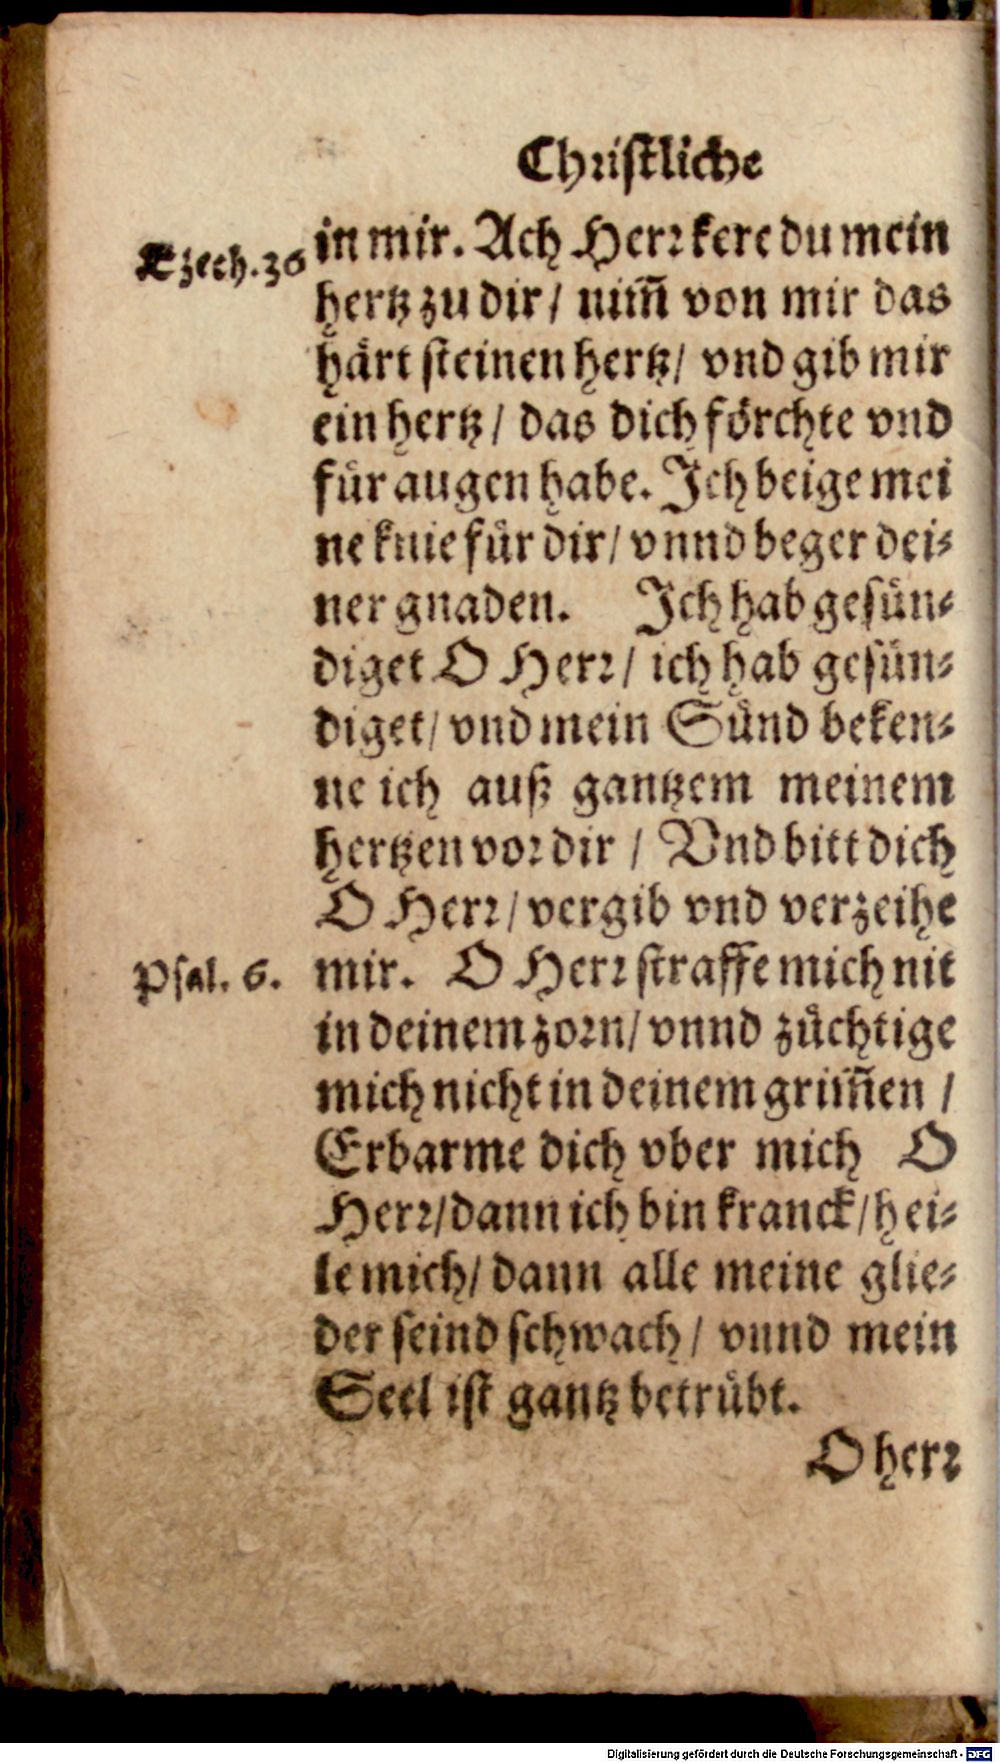 Christliche
Ezech. 36
in mir. Ach Herr kere du mein
hertz zu dir / nim̃ von mir das
härt steinen hertz / vnd gib mir
ein hertz / das dich förchte vnd
für augen habe. Ich beige mei
ne knie für dir / vnnd beger dei⸗
ner gnaden. Ich hab gesün⸗
diget O Herr / ich hab gesün⸗
diget / vnd mein Sünd beken⸗
ne ich auß gantzem meinem
hertzen vor dir / Vnd bitt dich
O Herr / vergib vnd verzeihe
Psal. 6.
mir. O Herr straffe mich nit
in deinem zorn / vnnd züchtige
mich nicht in deinem grim̃en /
Erbarme dich vber mich O
Herr / dann ich bin kranck / hei⸗
le mich / dann alle meine glie⸗
der seind schwach / vnnd mein
Seel ist gantz betrübt.
O herr
Digitalisierung gefördert durch die Deutsche Forschungsgemeinschaft - DFG